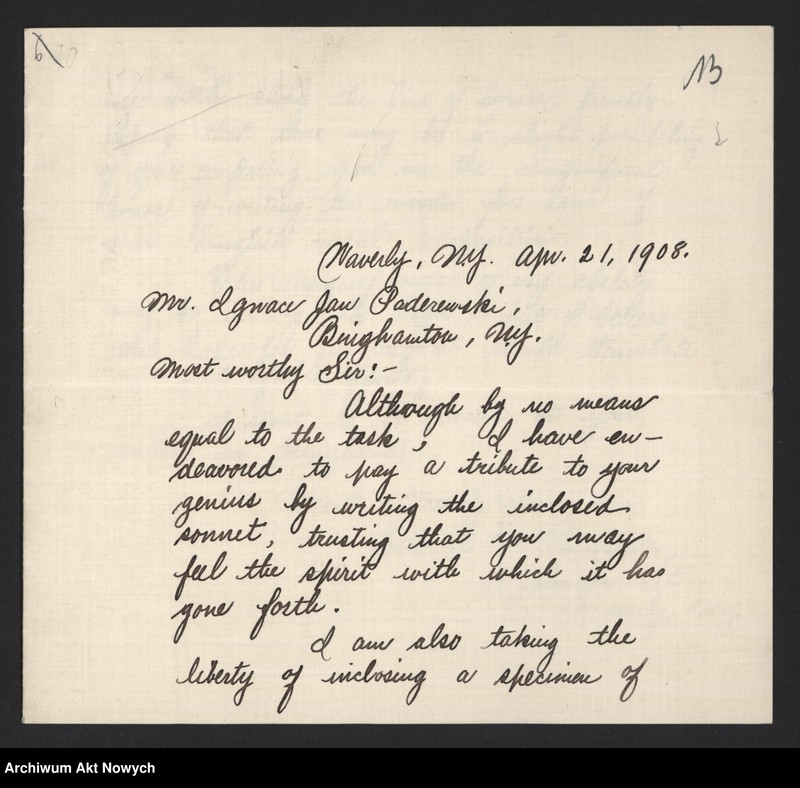 13
Waverly, N.Y. Apr. 21, 1908.
Mr. Ignace Jan Paderewski,
Binghamton, N.Y.
Most worthy Sir:-
Although by no means
equal to the task, I have en-
deavored to pay a tribute to your
genius by writing the inclosed
sonnet, trusting that you may
feel the spirit with which it has
gone forth.
I am also taking the
liberty of inclosing a specimen of
Archiwum Akt Nowych